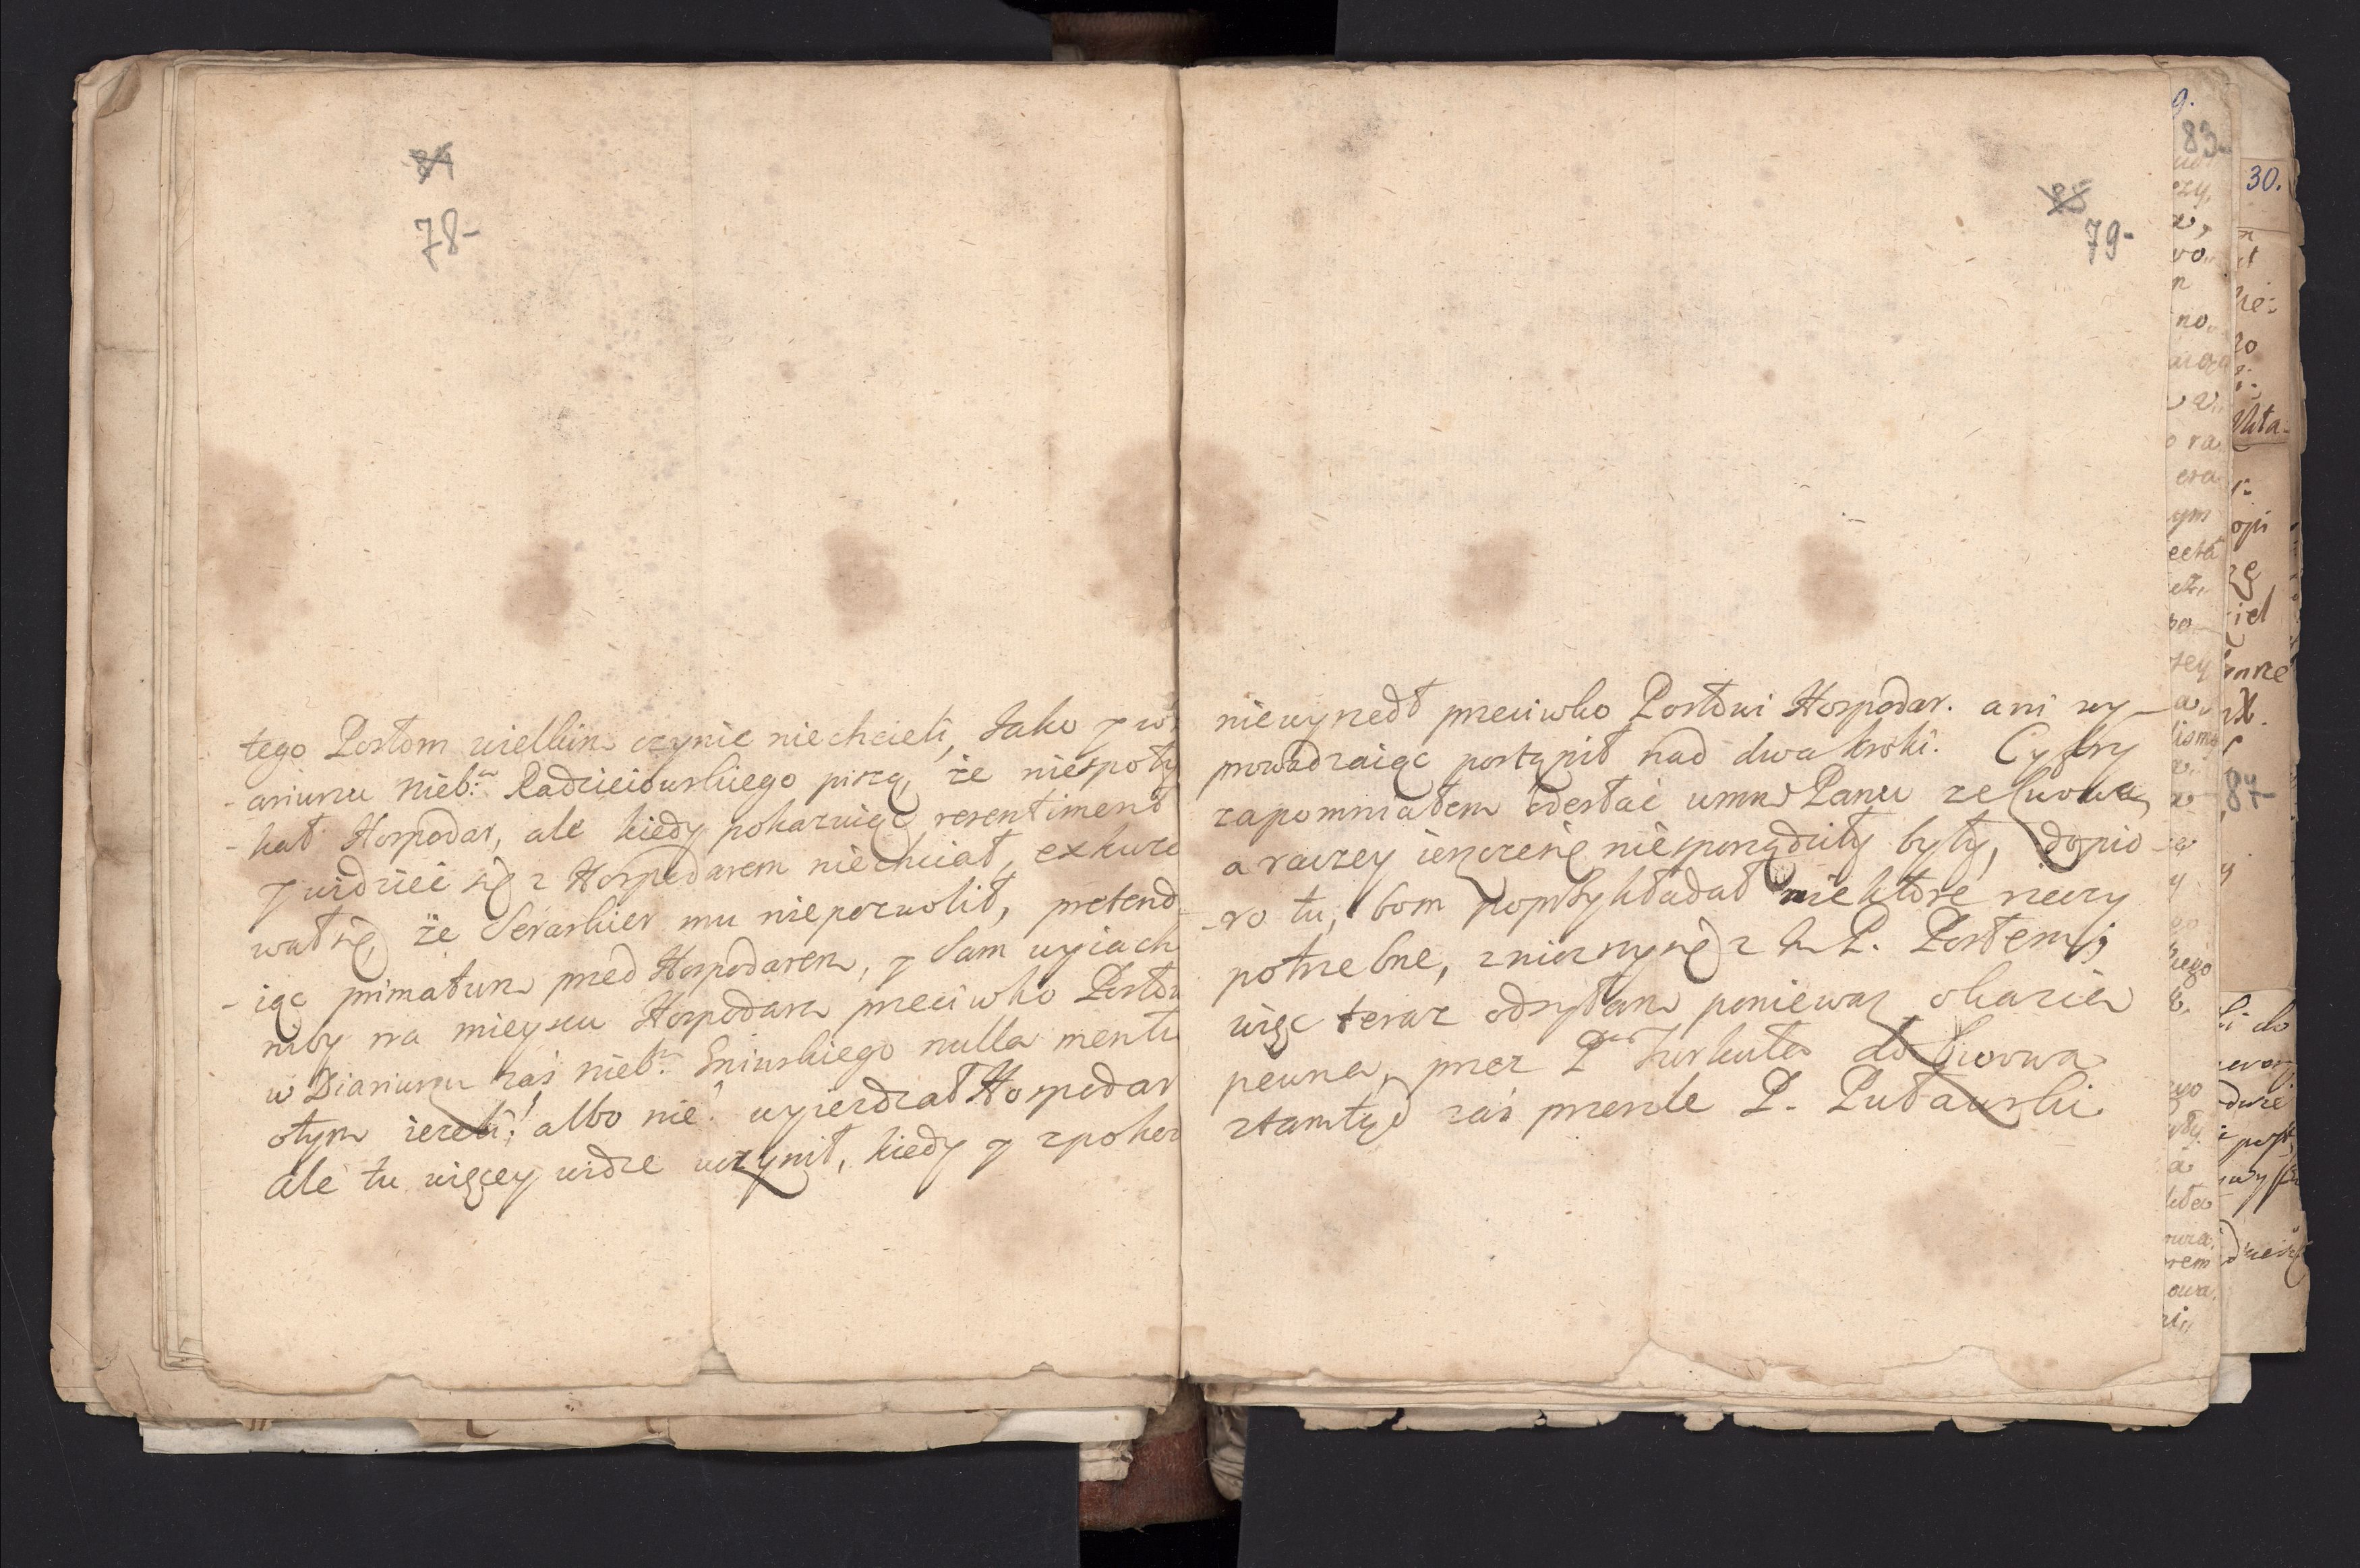 84
78-
tego Posłom wielkim czynic niechcieli, Jako y w
-ariuszu nieb: Radzieiowskiego piszą, że niespoty
-kał Hospodar, ale kiedy pokazuiąc resentiment
y widzieć się z Hospodarem niechciał, exkuzo
wał się, że Seraskier mu niepozwolił, pretend
-iąc primatum przed Hospodarem, y sam wyiach
niby na mieyscu Hospodara przeciwko Posło
w Diariuszu zaś nieb: Gninskiego nulla menti
otym ieżeli! albo nie! wyiezdzał Hospodar
ale tu więcey widze uczynił, kiedy y zpoko
85
79-
niewyszedł przeciwko Posłowi Hospodar. ani wy-
prowadzaiąc postąpił nad dwa kroki. Cyfry
zapomniałem odesłać ummu Panu ze Lwowa,
a raczey ieszczenie niesporządziły były, dopio
-ro tu, bom poprzykładał niektóre rzeczy
potrzebne, zniozszy się z P. Posłem;
więc teraz odsyłam poniewasz okazia
pewna, przez P. Turkuła do Lwowa
ztamtąd zaś przesle P. Puławski.
9.
83-
30.
84-